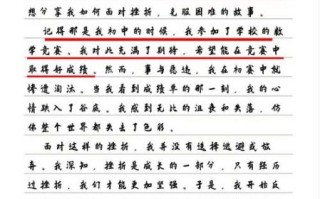 想分享我如何面对挫折，克服困难的故事。
记得那是我初中的时候，我参加了学校的数
学竞赛。我对此充满了期待，希望能在竞赛中
取得好成绩。然而，事与愿违，我在初赛中就
惨遭淘汰。当我看到成绩单的那一刻，我的心
情跌入了谷底。我感到无比的沮丧和失落，仿
佛整个世界都失去了色彩。
面对这样的挫折，我并没有选择逃避或放
弃。我深知，挫折是成长的一部分，只有经历
过挫折，我们才能更加坚强。于是，我开始反